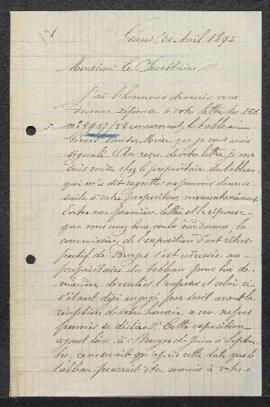 Gand, 21 Avril 1892
Monsieur le Secrétaire
J'ai l'honneur de vous
réponse à votre lettre du
concernant le tableau
que je vous avais
signalé. Au reçu de votre lettre, je me
suis rendu chez le propriétaire du tableau,
qui m'a dit regretter ne pouvoir donner
suite à votre proposition, momentanément.
Entre ma première lettre et la réponse
que vous avez bien voulu me donner, la
commission de l'exposition d'art rétros-
pectif de Bruges s'est adressée au
propriétaire du tableau pour lui de-
mander de vouloir l'exposer et celui-ci
s'étant déjà engagé par écrit avant la
réception de votre lettre a cru ne pas
pouvoir se dédire. Cette exposition
ayant lieu à Bruges de Juin à Septem-
bre, ce serait qu'après cette date que le
tableau pourrait être soumis à votre